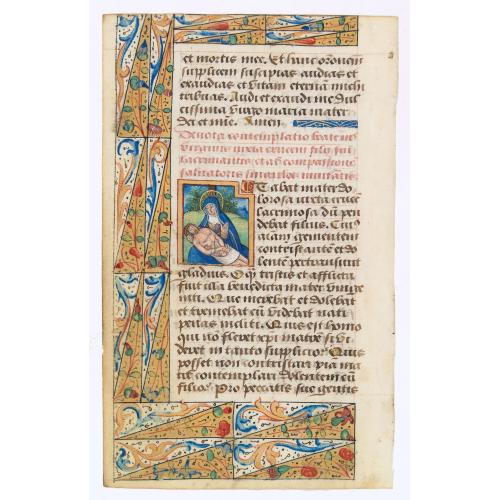 et mortis mee. Et hanc orōnem
supplicem suscipias audias et
exaudias et vitam eternā michi
tribuas. Audi et exaudi me dul
cissima virgo maria mater
dei et mīe. Amen
Devota contemplatio beate
virginis iuxta crucem filij sui
lacrimantis et ad compassionē
salvatoris singulos
Stabat mater do
lorosa iuxta crucē
lacrimosa dū pen
debat filius. Cuiꝰ
aīam gementem
contristantē et do
lentē pertransivit
gladius. O qͫ tristis et afflicta
fuit illa benedicta mater unige
niti. Que merebat et dolebat
et tremebat cū videbat nati
penas incliti. Quis est homo
qui nō fleret xp̄i matrē si vi
deret in tanto supplicio? Quis
posset non contristari piā ma
trē contemplari dolentem cū
filio? Pro peccatis sue gentis